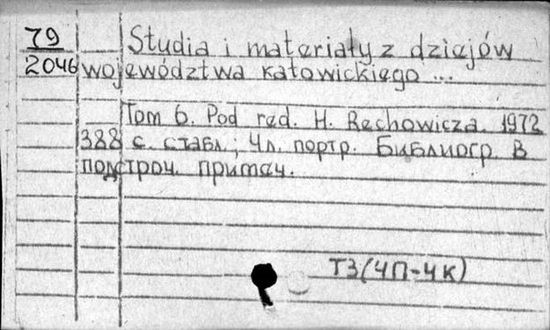 79
2046
Studia i materiały z dziejów
województwa katowickiego ...
Tom 6. Pod red. H. Rechowicza. 1972
388 с. стабл; 4 л. портр. Библиогр. в
подстроч. примеч.
Т3(4П-4К)